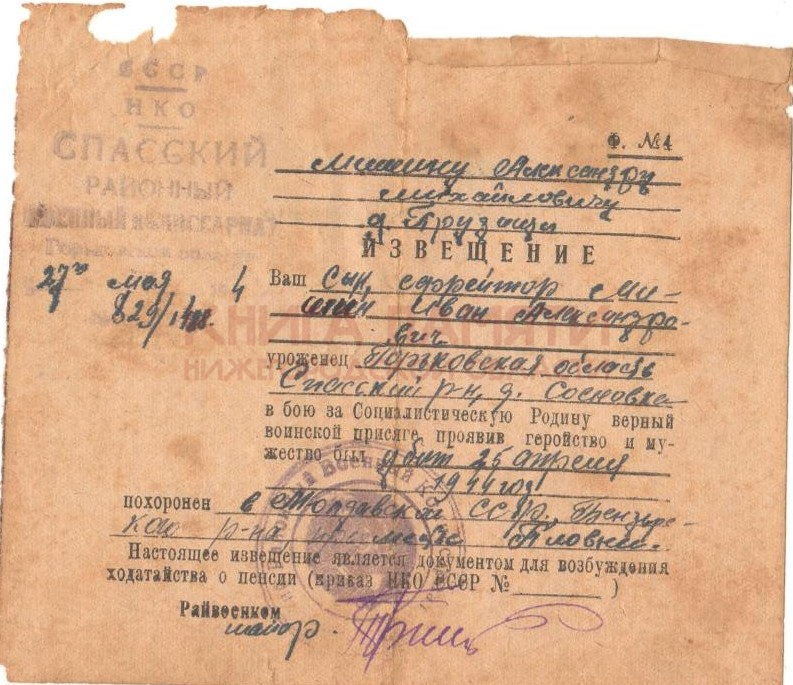 СССР
НКО
СПАССКИЙ
РАЙОННЫЙ
ВОЕННЫЙ КОМИССАРИАТ
Горьковской области
27го мая 4
829/
Ф. №4
Мишину Александру
Михайловичу
ИЗВЕЩЕНИЕ
Ваш Сын, ефрейтор Ми-
шин Иван Александро-
вич
уроженец Горьковская область
Спасский р-н, д. Сосновка
в бою за Социалистическую Родину верный
воинской присяге, проявив геройство и му-
жество был убит 25 апреля
1944 год
похоронен в Молдавской ССР, Бендерс-
кого р-на
Настоящее извещение является документом для возбуждения
ходатайства о пенсии (приказ НКО СССР № )
Райвоенком
майор.
КНИГА ПАМЯТИ